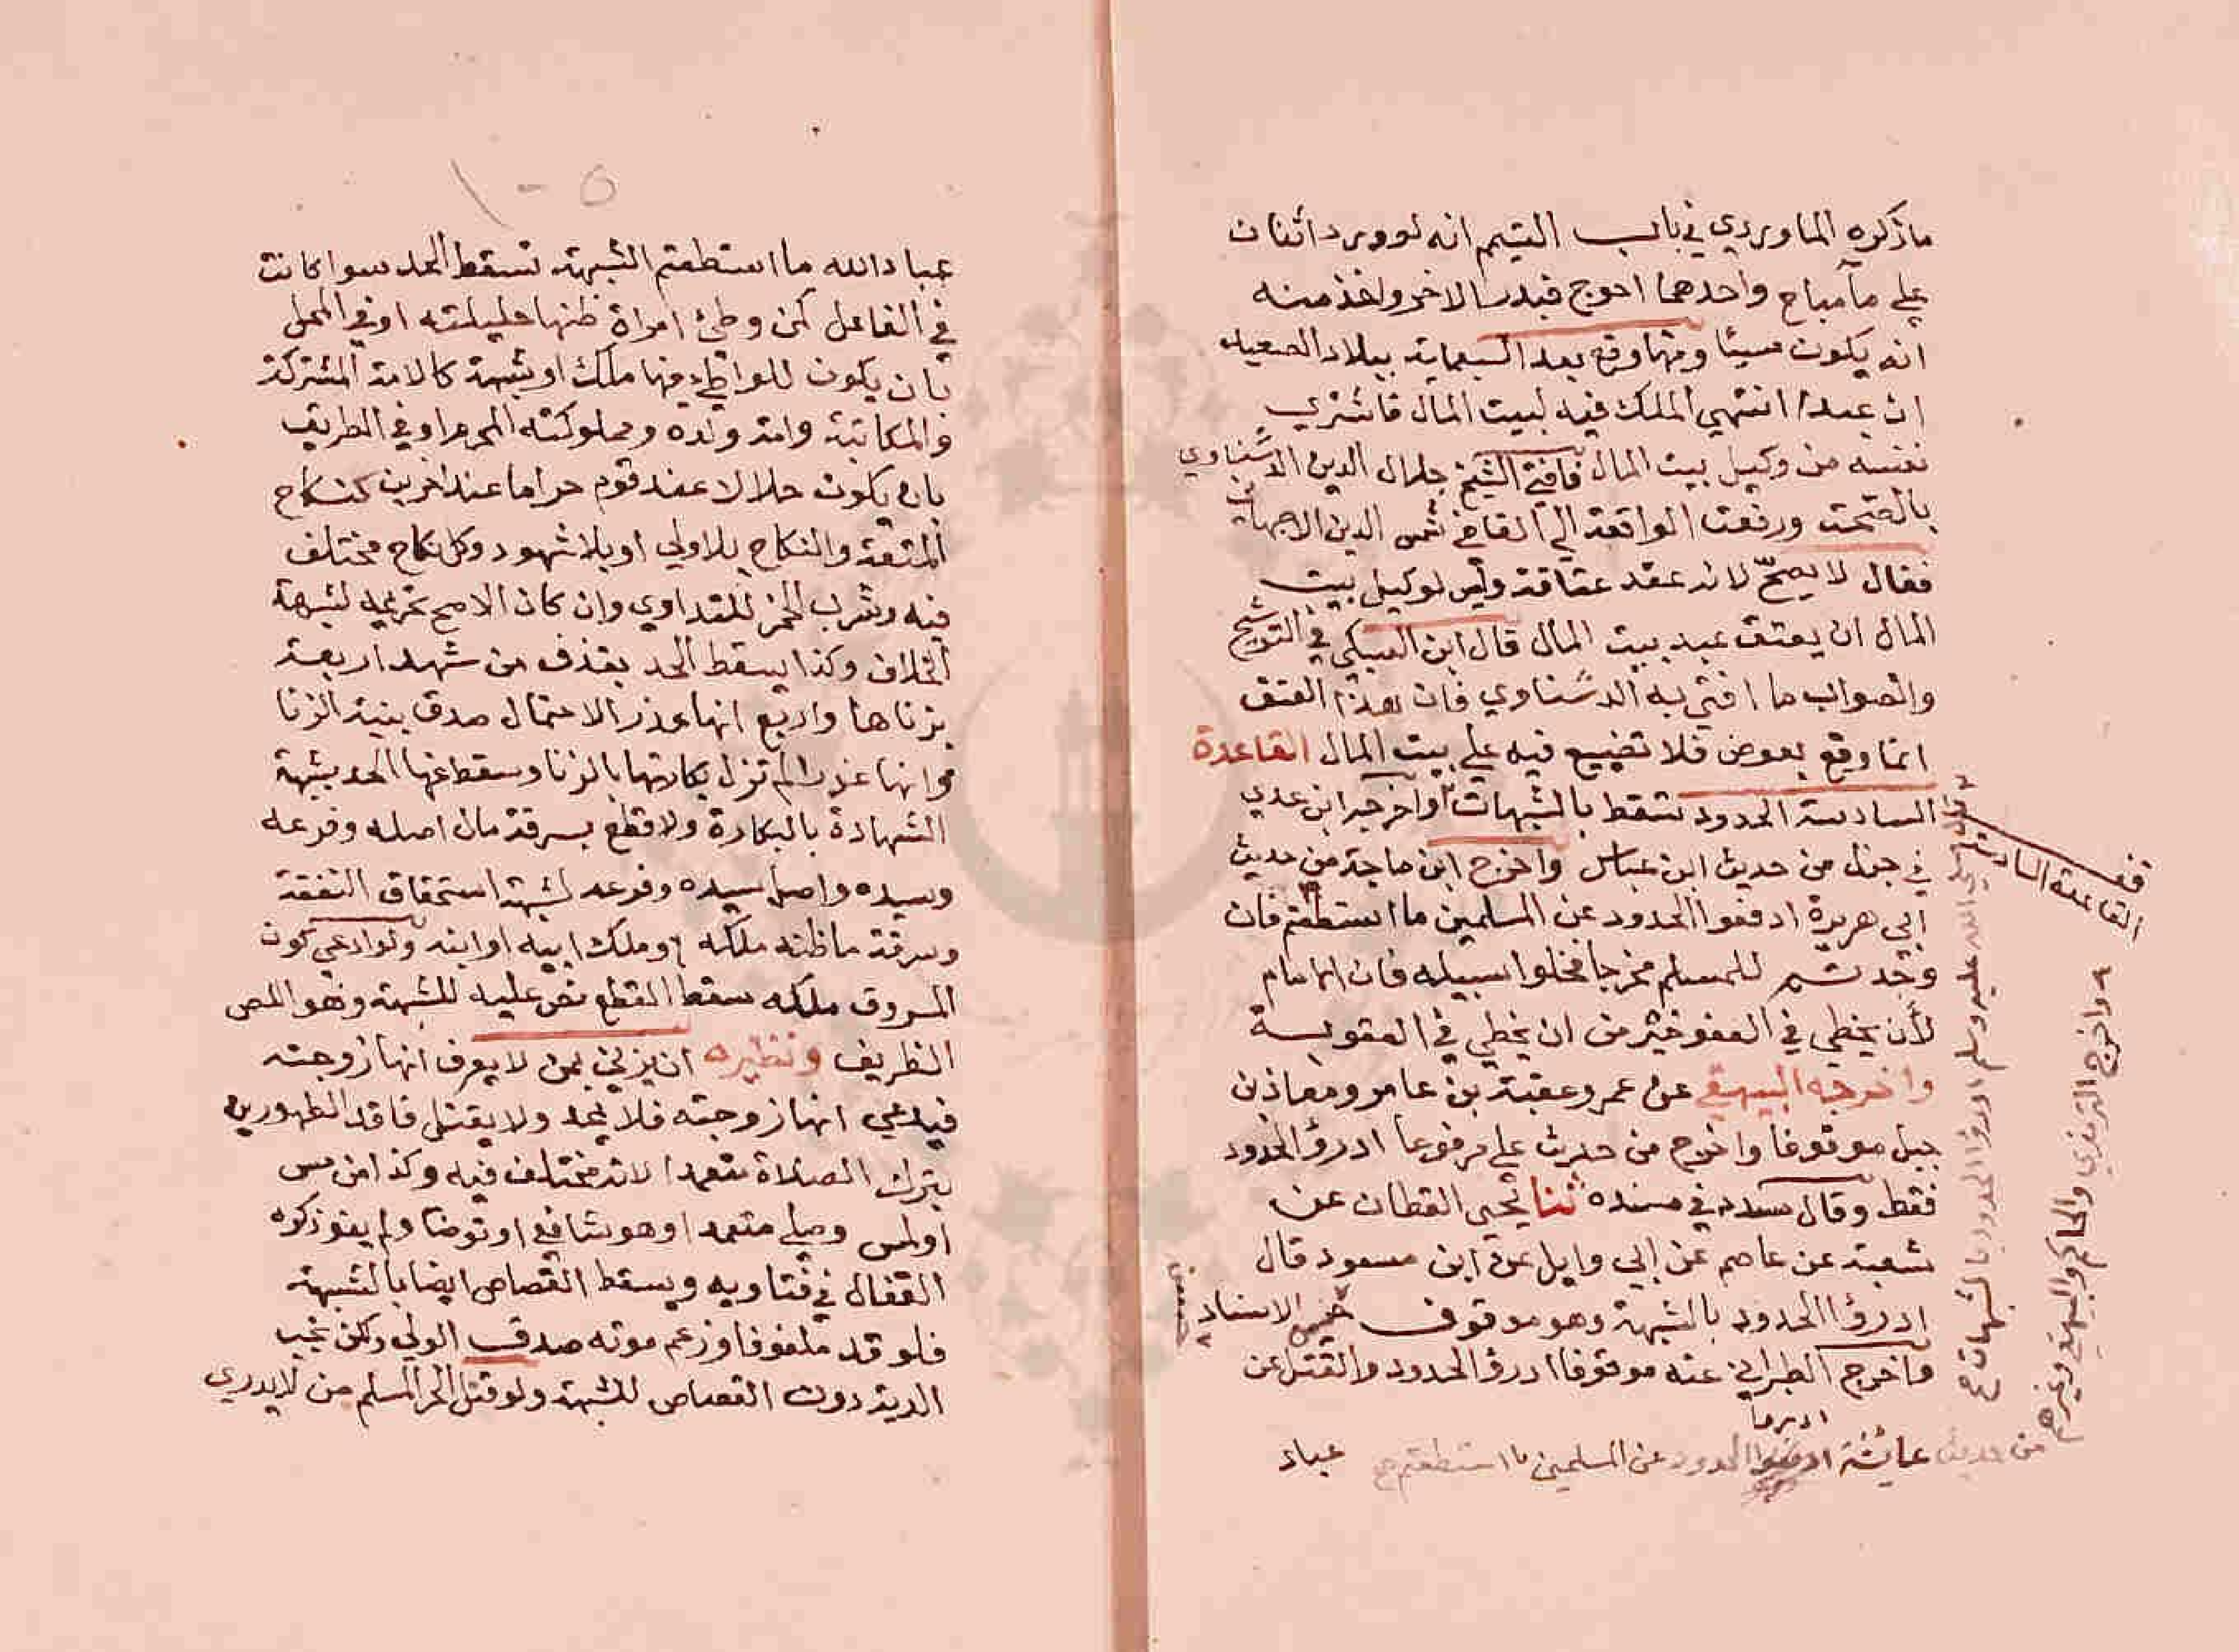 ماذكره الماوردي في باب التيمم انه لوورد اثنان
علي مآمباح واحدهما احوج فبدر الاخر واخذ منه
انه يكون مسيئا ومنها وقع بعد السبعماية ببلاد الصعيد
ان عبدا انتهي الملك فيه لبيت المال فاشتري
نفسه من وكيل بيت المال فافتي الشيخ جلال الدين الدشناوي
بالصحت ورفعت الواقعة الي القاضي شمس الدين الاصبهاني
فقال لا يصحّ لانه عقد عتاقة وليس لوكيل بيت
المال ان يعتق عبد بيت المال قال ابن السبكي في التوشيح
والصواب ما افتي به الدشناوي فان هذا العتق
انما وقع بعوض فلا تضييع فيه علي بيت المال القاعدة
السادسة الحدود تسقط بالشبهات واخرجه ابن عدي
في جزء من حديث ابن عباس واخرج ابن ماجة من حديث
ابي هريرة ادفعوا الحدود عن المسلمين ما استطعتم فان
وجدتم للمسلم مخرجا فخلوا سبيله فان الامام
لأن يخطي في العفو خير من ان يخطي في العقوبة
واخرجه البيهقي عن عمر وعقبة بن عامر ومعاذ بن
جبل موقوفا واخرج من حديث علي مرفوعا ادرؤ الحدود
فقط وقال مسدد في مسنده ثنا يحيي القطان عن
شعبة عن عاصم عن ابي وايل عن ابن مسعود قال
ادرؤا الحدود بالشبهة وهو موقوف حسن الاسناد
واخرج الطبراني عنه موقوفا ادرؤ الحدود والقتل عن
عباد
قف
القاعدة السادسة
قال صلي الله عليه وسلم ادرؤا الحدود بالشبهات
واخرج الترمذي والحاكم والبيهقي وغيرهم
من حديث عائشة ادرؤا الحدود عن المسلمين ما استطعتم
١٠٥
عباد الله ما استطعتم الشبهة تسقط الحد سوا كانت
في الفاعل كمن وطئ امراة ظنها حليلته او في المحل
بان يكون للواطي فيها ملك او شبهة كالامة المشتركة
والمكاتبة وامة ولده ومملوكته المحرم او في الطريق
بان يكون حلالا عند قوم حراما عند اخرين كنكاح
المتعة والنكاح بلا ولي او بلا شهود وكل نكاح مختلف
فيه وشرب الخمر للتداوي وان كان الاصح تحريمه لشبهة
الخلاف وكذا يسقط الحد بقذف من شهد اربعة
بزناها واربع انها عذرا لاحتمال صدق بينة الزنا
وانها عذرا لم تزل بكارتها بالزنا وسقط عنها الحد بشبهة
الشهادة بالبكارة ولا قطع بسرقة مال اصله وفرعه
وسيده واصل سيده وفرعه لشبهة استحقاق النفقة
وسرقة ماظنه ملكه او ملك ابيه او ابنه ولو ادعي كون
المسروق ملكه سقط القطع نص عليه للشبهة وهو اللص
الظريف ونظيره ان يزني بمن لا يعرف انها زوجته
فيدعي انها زوجته فلا يحد ولا يقتل فاقد الطهورين
بترك الصلاة متعمدا لانه مختلف فيه وكذا من مس
اولمس وصلي متعمدا وهو شافعي او توضا ولم ينو ذكره
القفال في فتاويه ويسقط القصاص ايضا بالشبهة
فلو قد ملفوفا وزعم موته صدق الولي ولكن يجب
الدية دون القصاص للشبهة ولو قتل الحر المسلم من لا يدري